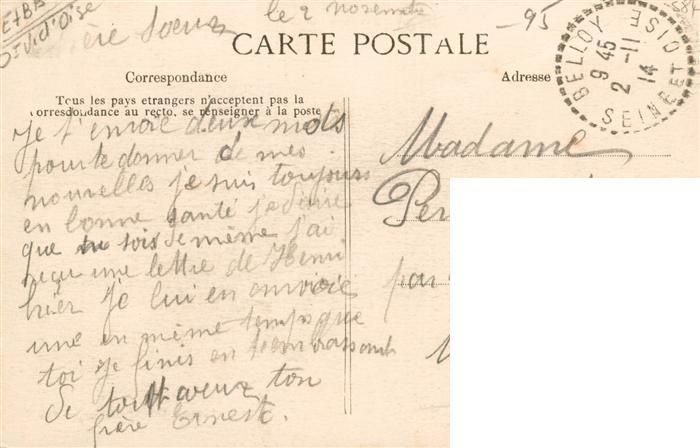 le 2 novembre
-95
ère Soeur
CARTE POSTALE
BELLOY SEINE ET OISE
9 45
2 -11
14
D't Vd'Oise
Correspondance
Adresse
Tous les pays etrangers n'acceptent pas la
correspondance au recto, se renseigner à la poste
Je t'envoie deux mots
pour te donner de mes
nouvelles je suis toujours
en bonne santé je désire
que tu sois de même j'ai
reçu une lettre de Henri
hier je lui en anvoie
une en même temps que
toi je finis en t'embrassant
de tout coeur ton
frère Ernest.
Madame
Per
par